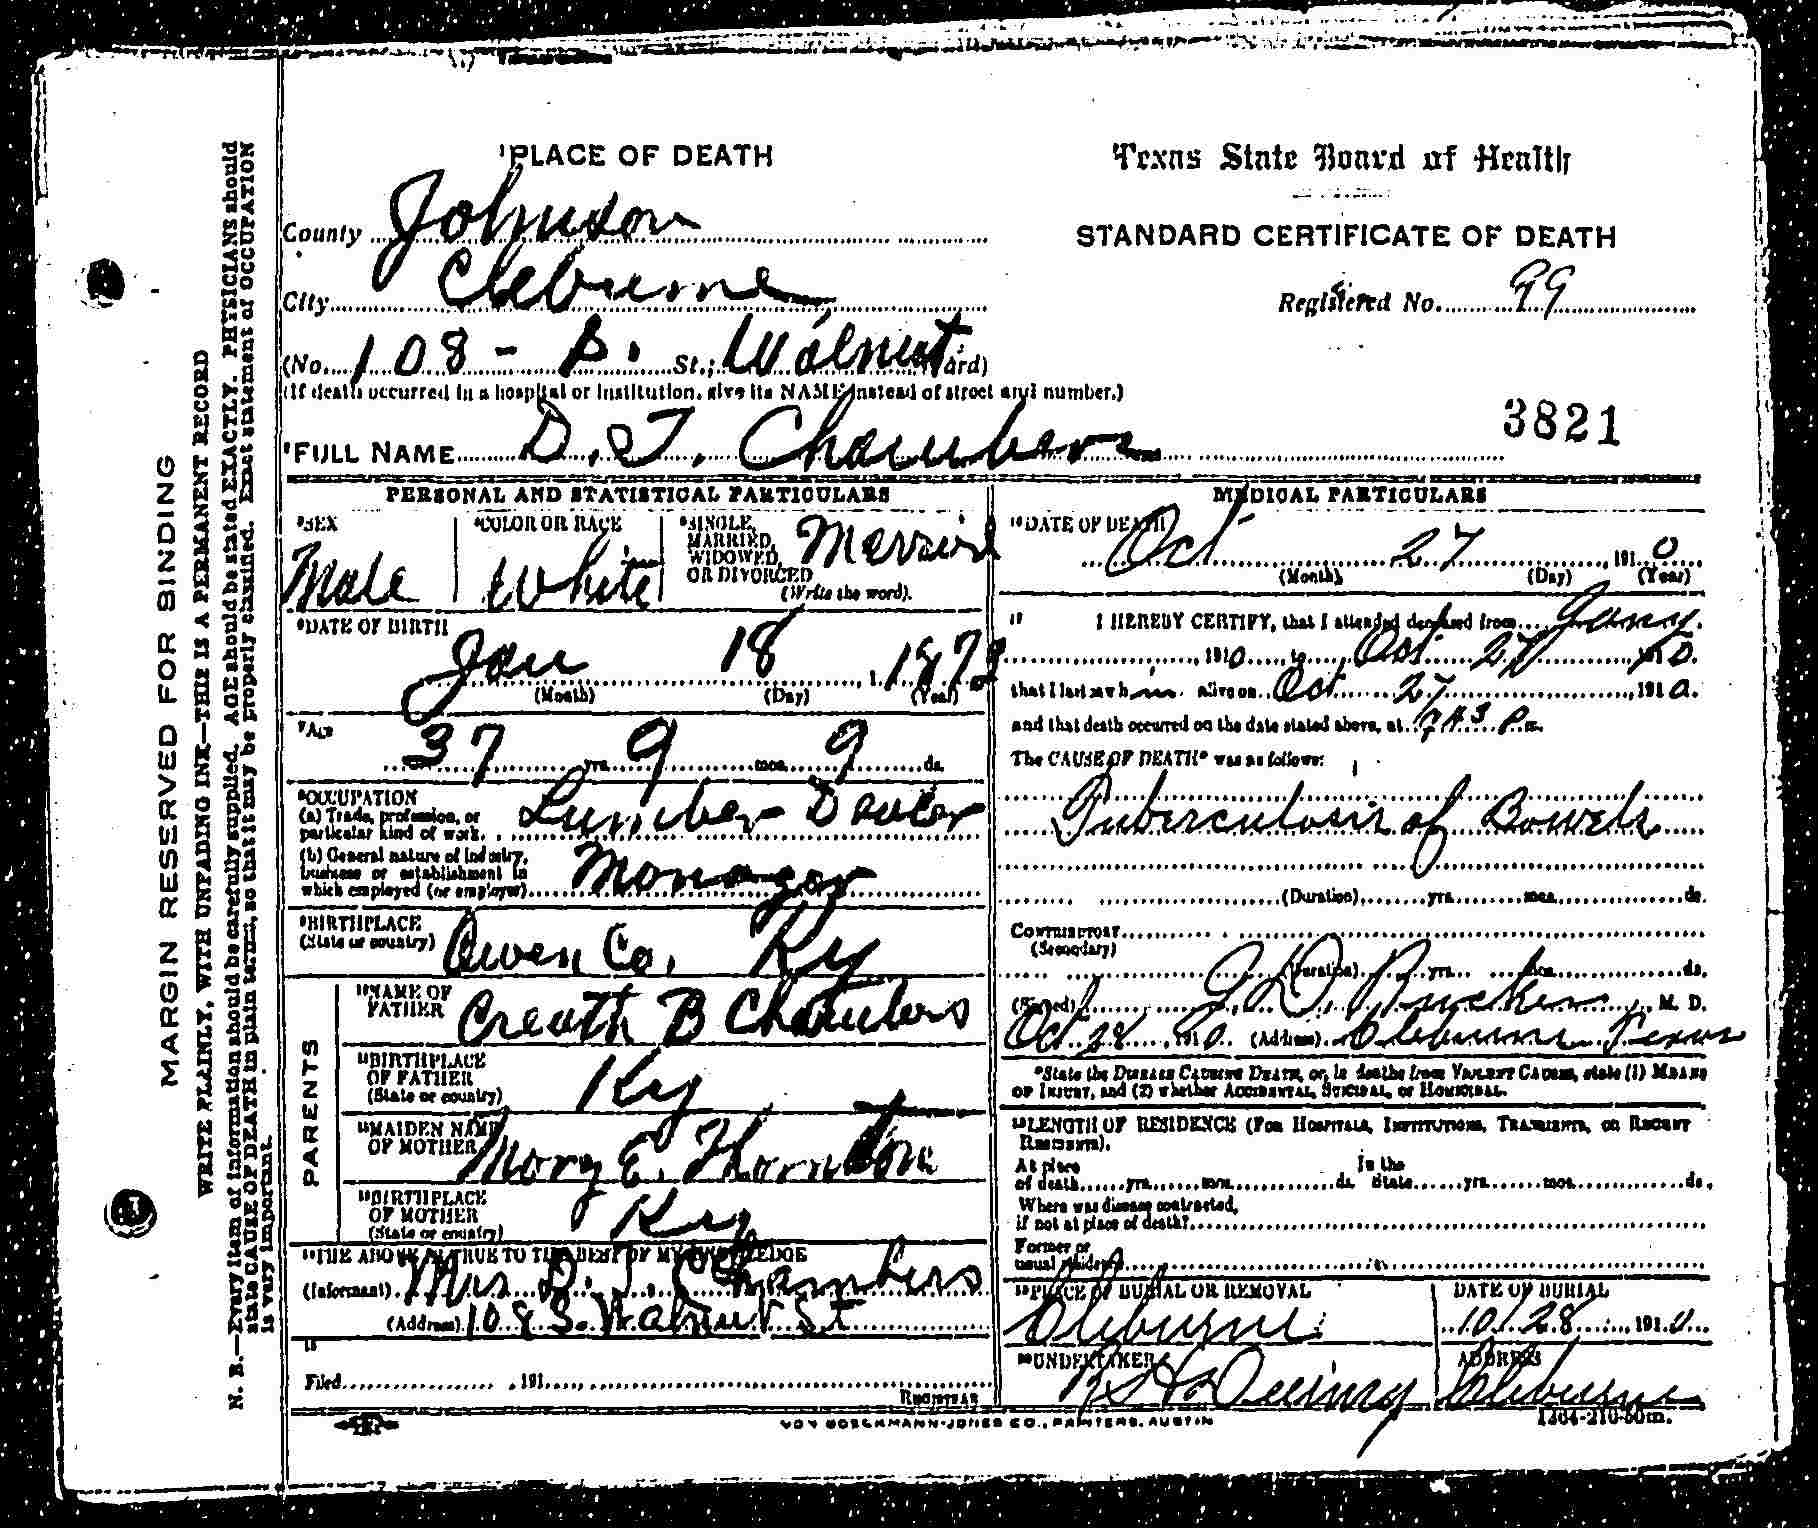 MARGIN RESERVED FOR BINDING
WRITE PLAINLY, WITH UNFADING INK—THIS IS A PERMANENT RECORD
N. B.—Every item of information should be carefully supplied. AGE should be stated EXACTLY. PHYSICIANS should
state CAUSE OF DEATH in plain terms, so that it may be properly classified. Exact statement of OCCUPATION
is very important.
1PLACE OF DEATH
County Johnson
City Cleburne
(No. 108 - S. St.; Walnut Ward)
(If death occurred in a hospital or institution, give its NAME instead of street and number.)
Texas State Board of Health
STANDARD CERTIFICATE OF DEATH
Registered No. 99
3821
2FULL NAME D. T. Chambers
PERSONAL AND STATISTICAL PARTICULARS
3SEX Male
4COLOR OR RACE White
5SINGLE, MARRIED, WIDOWED, OR DIVORCED (Write the word). Married
6DATE OF BIRTH
Jan 18, 1873
(Month) (Day) (Year)
7AGE
37 yrs. 9 mos. 9 ds.
8OCCUPATION
(a) Trade, profession, or particular kind of work. Lumber Dealer
(b) General nature of industry, business or establishment in which employed (or employer) Manager
9BIRTHPLACE
(State or country) Owen Co. Ky
PARENTS
10NAME OF FATHER Creath B Chambers
11BIRTHPLACE OF FATHER
(State or country) Ky
12MAIDEN NAME OF MOTHER Mary E. Thornton
13BIRTHPLACE OF MOTHER
(State or country) Ky
14THE ABOVE IS TRUE TO THE BEST OF MY KNOWLEDGE
(Informant) Mrs D. T. Chambers
(Address) 108 S. Walnut St
15
Filed , 191
REGISTRAR
MEDICAL PARTICULARS
16DATE OF DEATH
Oct 27, 1910
(Month) (Day) (Year)
17 I HEREBY CERTIFY, that I attended deceased from Jany.
, 1910 to Oct 27 1910.
that I last saw him alive on Oct 27, 1910.
and that death occurred on the date stated above, at P m.
The CAUSE OF DEATH* was as follows:
Tuberculosis of Bowels
(Duration) yrs. mos. ds.
CONTRIBUTORY
(Secondary)
(Duration) yrs. mos. ds.
(Signed) M. D.
Oct 28, 1910 (Address) Cleburne Texas
*State the DISEASE CAUSING DEATH, or, in deaths from VIOLENT CAUSES, state (1) MEANS
OF INJURY, and (2) whether ACCIDENTAL, SUICIDAL, or HOMICIDAL.
18LENGTH OF RESIDENCE (FOR HOSPITALS, INSTITUTIONS, TRANSIENTS, OR RECENT
RESIDENTS).
At place of death yrs. mos. ds. In the State yrs. mos. ds.
Where was disease contracted,
if not at place of death?
Former or
usual residence
19PLACE OF BURIAL OR REMOVAL
Cleburne
DATE OF BURIAL
10/28, 1910.
20UNDERTAKER
ADDRESS
Cleburne
VON BOECKMANN-JONES CO., PRINTERS, AUSTIN
1364-210-50m.